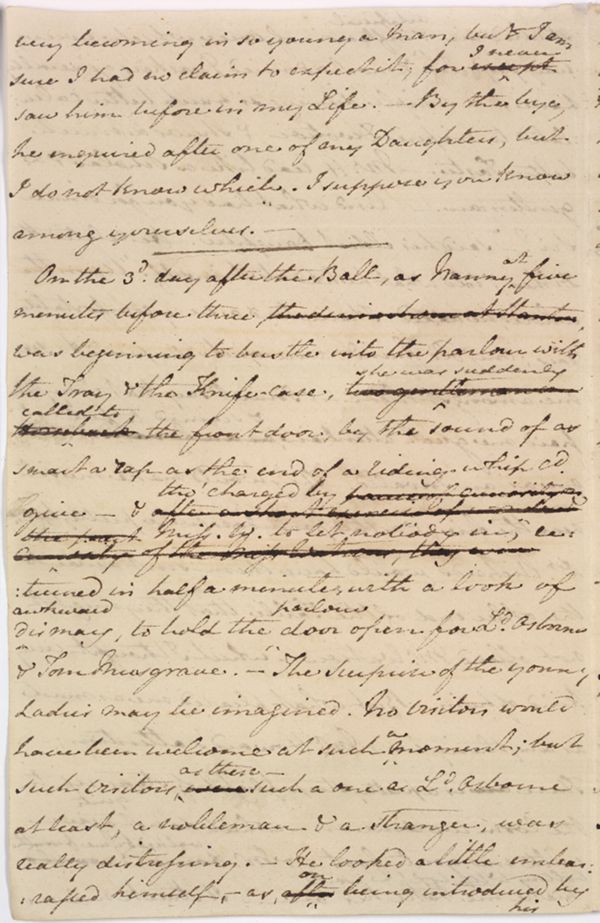 very becoming in so young a Man, but I am
sure I had no claim to expect it; for I never
saw him before in my Life. — By the bye,
he enquired after one of my Daughters, but
I do not know which. I suppose you know
among yourselves. —
On the 3d. day after the Ball, as Nanny at five
minutes before three
was beginning to bustle into the parlour with
the Tray & the Knife-case, she was suddenly
called to the front door, by the sound of as
smart a rap as the end of a riding-whip cd.
give — & tho' charged by
Miss W. to let nobody in, re:
:turned in half a minute, with a look of
awkward dismay, to hold the parlour door open for Ld. Osborne
& Tom Musgrave. — The Surprise of the young
Ladies may be imagined. No visitors would
have been welcome at such a moment; but
such visitors as these — such a one as Ld. Osborne
at least, a nobleman & a stranger, was
really distressing. — He looked a little embar:
:rassed himself, — as, on being introduced by
his